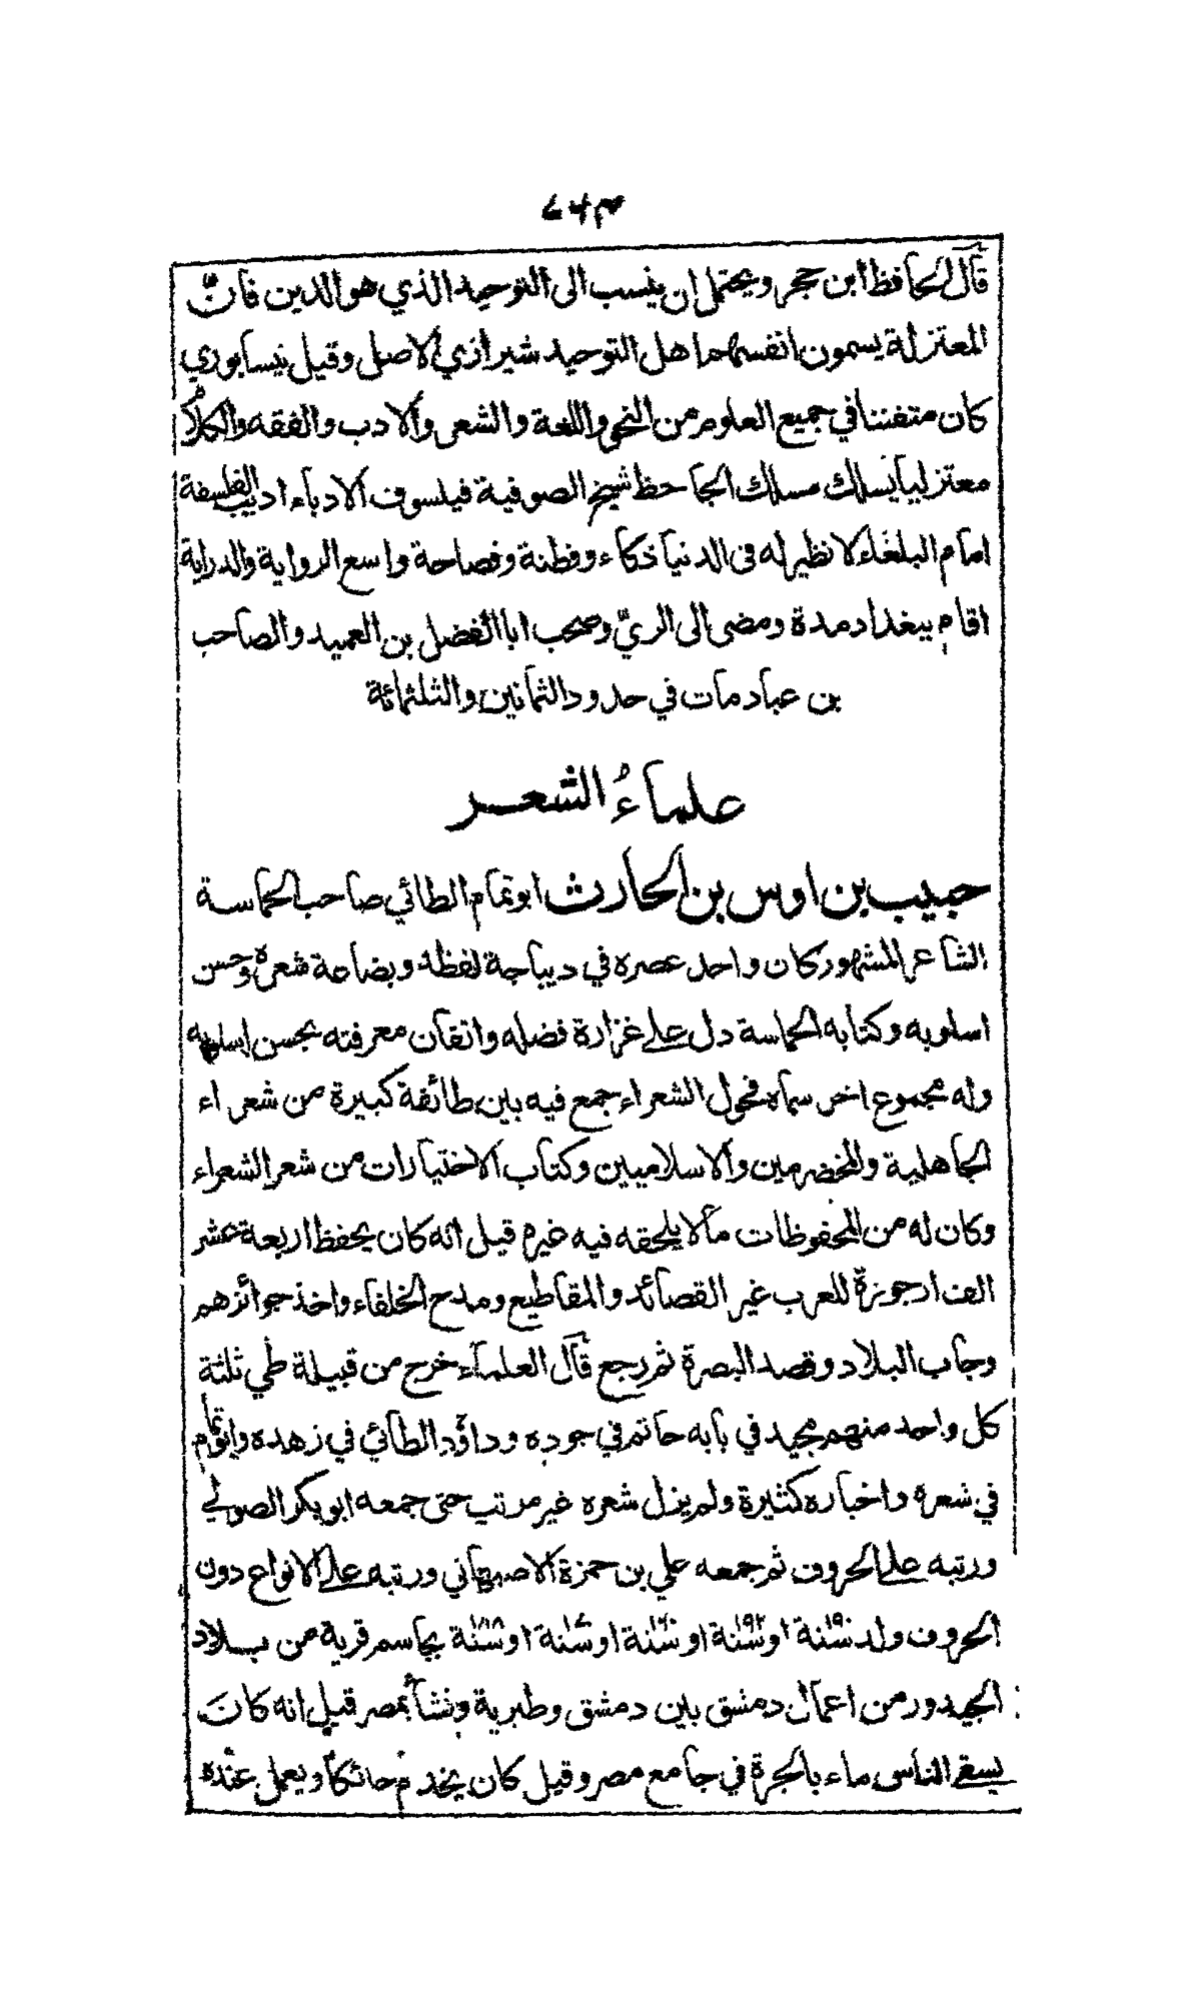 ٧٤٣
قال الحافظ ابن حجر ويحتمل ان ينسب الى التوحيد الذي هو الدين فانّ
المعتزلة يسمون انفسهم اهل التوحيد شيرازي الاصل وقيل نيسابوري
كان متفننا في جميع العلوم من النحو واللغة والشعر والادب والفقه والكلام
معتزليا يسلك مسلك الجاحظ شيخ الصوفية فيلسوف الادباء اديب الفلسفة
امام البلغاء لا نظير له فى الدنيا ذكاء وفطنة وفصاحة واسع الرواية والدراية
اقام ببغداد مدة ومضى الى الريّ وصحب ابا الفضل بن العميد والصاحب
بن عباد مات في حدود الثمانين والثلثمائة
علماءُ الشعر
حبيب بن اوس بن الحارث ابو تمام الطائي صاحب الحماسة
الشاعر المشهور كان واحد عصره في ديباجة لفظه وبضاعة شعره وحسن
اسلوبه وكتابه الحماسة دل على غزارة فضله واتقان معرفته بحسن اسلوبه
وله مجموع اخر سماه فحول الشعراء جمع فيه بين طائفة كبيرة من شعراء
الجاهلية والمخضرمين والاسلاميين وكتاب الاختيارات من شعر الشعراء
وكان له من المحفوظات مالا يلحقه فيه غيره قيل انه كان يحفظ اربعة عشر
الف ارجوزة للعرب غير القصائد والمقاطيع ومدح الخلفاء واخذ جوائزهم
وجاب البلاد وقصد البصرة ثم رجع قال العلماء خرج من قبيلة طي ثلثة
كل واحد منهم مجيد في بابه حاتم في جوده وداؤد الطائي في زهده وابو تمام
في شعره واخباره كثيرة ولم يزل شعره غير مرتب حتى جمعه ابو بكر الصولي
ورتبه على الحروف ثم جمعه علي بن حمزة الاصبهاني ورتبه على الانواع دون
الحروف ولد سنة ١٩٠ او سنة ١٩٢ او سنة او سنة او سنة ١٨٨ بجاسم قرية من بلاد
الجيدور من اعمال دمشق بين دمشق وطبرية ونشأ بمصر قيل انه كانَ
يسقى الناس ماء بالجرة في جامع مصر وقيل كان يخدم حائكا ويعمل عنده